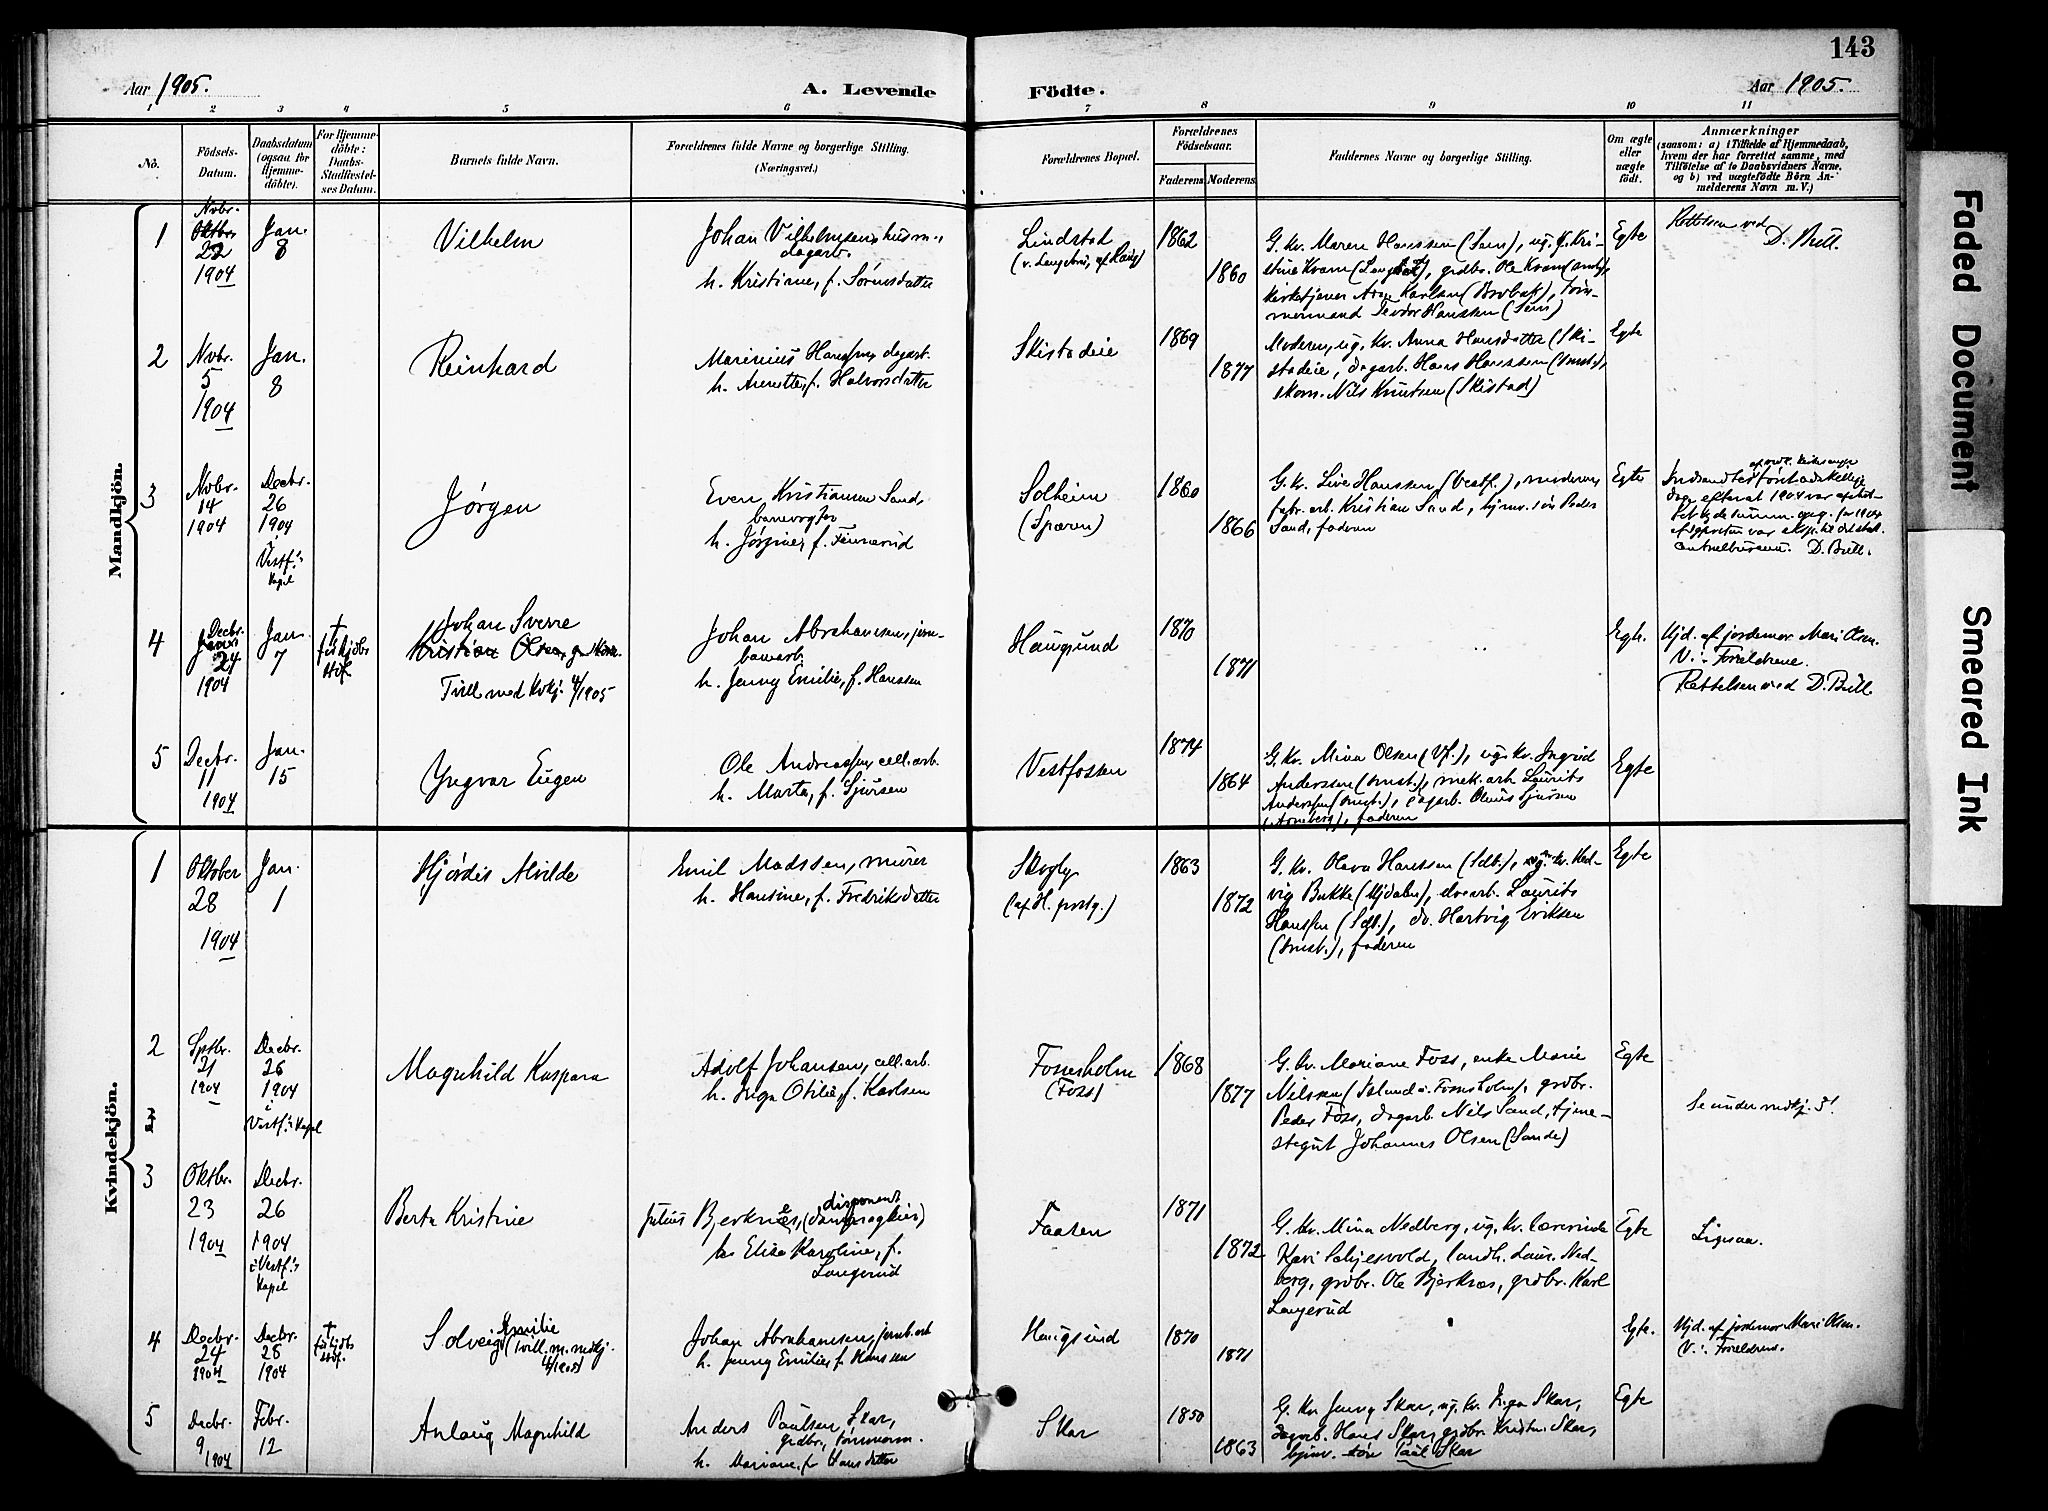 143
Aar 1905.
A. Levende
Födte.
Aar 1905.
1 2 3 4 5 6 7 8 9 10 11
No.
Födsels-
Datum.
Daabsdatum
(ogsaa for
Hjemme-
döbte).
For Hjemme-
döbte:
Daabs-
Stadfæstel-
ses Datum.
Barnets fulde Navn.
Forældrenes fulde Navne og borgerlige Stilling.
(Næringsvei.)
Forældrenes Bopæl.
Forældrenes
Födselsaar.
Faderens. Moderens.
Faddernes Navne og borgerlige Stilling.
Om ægte
eller
uægte
födt.
Anmærkninger
(saasom: a) i Tilfælde af Hjemmedaab,
hvem der har forrettet samme, med
Tilföielse af to Daabsvidners Navne,
og b) ved uægtefödte Börn An-
melderens Navn m. V.)
Mandkjön.
1
Novbr.
Oktbr.
22
1904
Jan.
8
Vilhelm
Johan Vilhelmsen, husm.,
dagarb.
h. Kristiane, f. Sørensdatter
Lindstad
1862
1860
G. kv. Maren Hanssen (Sem), ug. kv. Kri-
stine Kvam
kirketjener Karlsen (Brobak), tøm-
mermand Teodor Hanssen (Sem)
Egte
Rettelsen ved
D. Bull.
2
Novbr.
5
1904
Jan.
8
Reinhard
Marinius Hanssen, dagarb.
h. Anette, f. Halvorsdatter
Skistadeie
1869
1877
Moderen, ug. kv. Anna Hansdatter (Ski-
stadeie, dagarb. Hans Hanssen (smst.),
skom. Nils Knutsen (Skistad)
Egte
3
Novbr.
14
1904
Decbr.
26
1904
i
Vestf.'s
Kapel
Jørgen
Even Kristiansen Sand,
banevogter
h. Jørgine, f. Finnerud
Solheim
(Sparen)
1860
1866
G. kv. Live Hanssen (Vestf.), moderen,
fabr. arb. Kristian Sand, hjmv. søn Peder
Sand, faderen
Egte
D. Bull.
4
Decbr.
24
1904
Jan.
7
†
Johan Sverre
Kristian
Tvill. med Kvkj. 4/1905
Johan Abrahamsen, jern-
banearb.
h. Jenny Emilie, f. Hanssen
Haugsund
1870
1871
Egte.
Hjd. af jordemor Mari Olsen.
V.: Forældrene.
Rettelsen ved D. Bull.
5
Decbr.
11
1904
Jan.
15
Yngvar Eugen
Ole Andreassen, cell.arb.
h. Marta, f. Sjursen
Vestfossen
1874
1864
G. kv. Mina Olsen (Vf.), ug. kv. Ingrid
Anderssen (smst.), mek. arb. Laurits
Anderssen (smst.), dagarb. Olaus Sjursen
(Arneberg), faderen
Egte
Kvindekjön.
1
Oktober
28
1904
Jan.
1
Hjørdis Alvilde
Emil Madssen, murer
h. Hansine, f. Fredriksdatter
Skogly
1863
1872
G. kv. Olava Hanssen (Sdb.), ug. kv. Hed-
vig Bakke (Hjdalen), elvearb. Laurits
Hanssen (Sdb.), do. Hartvig Eriksen
(smst.), faderen
Egte
2
Sptbr.
21
1904
Decbr.
26
1904
i
Vestf.'s Kapel
Magnhild Kaspara
Adolf Johansen, cell.arb.
h. Inga Otilie, f. Karlsen
Fossesholm
(Foss)
1868
1877
G. kv. Mariane Foss, enke Marie
Nilssen, grdbr.
Peder Foss, dagarb. Nils Sand, tjene-
stegut Johannes Olsen (Sande)
Egte
Se under mdkj. 3!
3
Oktbr.
23
1904
Decbr.
26
1904
i Vestf.'s
Kapel
Berta Kristine
Julius Bjerknes, disponent
h. Elise Karoline, f.
Langerud
Faasen
1871
1872
G. kv. Mina Nedberg, ug. kv. lærerinde
Kari Schjesvold, landh. Laur. Ned-
berg, grdbr. Ole Bjerknes, grdbr. Karl
Langerud
Egte
Ligesaa.
4
Decbr.
24
1904
Decbr.
28
1904
†
Solveig Emilie
(tvill. m. mdkj.
4/1905)
Johan Abrahamsen, jernb. arb.
h. Jenny Emilie, f. Hanssen
Haugsund
1870
1871
Egte.
Hjd. af jordemor Mari Olsen.
V.: Forældrene.
5
Decbr.
9
1904
Febr.
12
Anlaug Magnhild
Anders Paulsen Skar,
grdbr., tømmerm.
h. Mariane, f. Hansdatter
Skar
1850
1863
G. kv. Jenny Skar, ug. kv. Inga Skar,
dagarb. Hans Skar, grdbr. Kristen Skar,
hjmv. søn Paul Skar
Egte
Faded Document
Smeared Ink